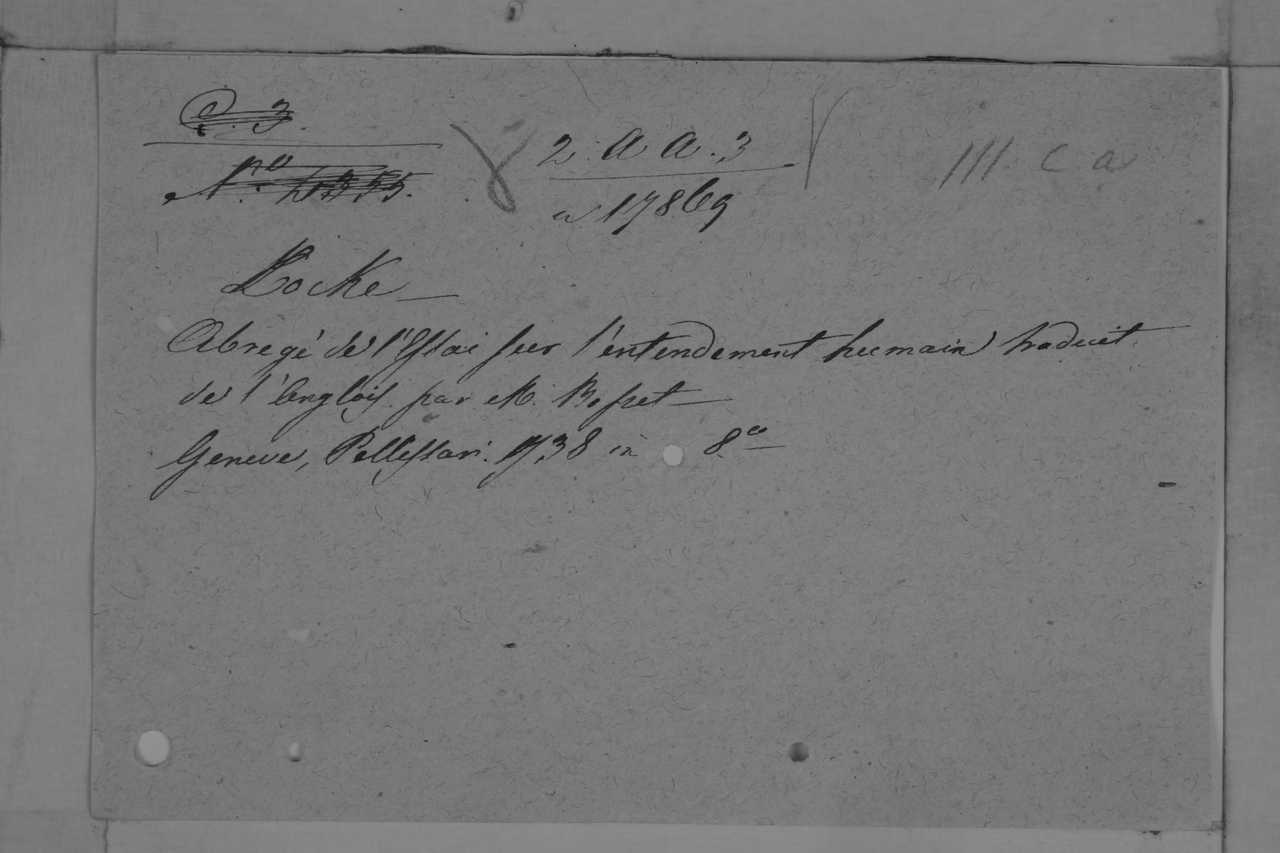 C. 3.
2. a a. 3
III c a
N.ro
a 17869
Locke
Abregé de l'Essai sur l'entendement humain traduit
de l'Anglois par M. Bosset
Geneve, Pellissari. 1738 in 8.o